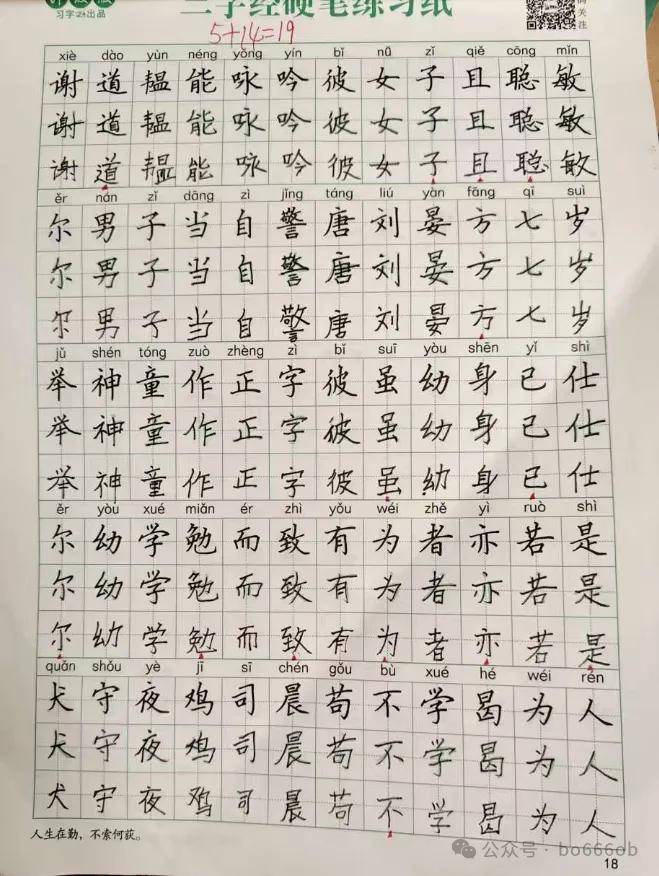 习字出品
三字经硬笔练习纸
关注
5+14=19
xiè dào yùn néng yǒng yín bǐ nǚ zǐ qiě cōng mǐn
谢道韫能咏吟彼女子且聪敏
谢道韫能咏吟彼女子且聪敏
谢道韫能咏吟彼女子且聪敏
ěr nán zǐ dāng zì jǐng táng liú yàn fāng qī suì
尔男子当自警唐刘晏方七岁
尔男子当自警唐刘晏方七岁
尔男子当自警唐刘晏方七岁
jǔ shén tóng zuò zhèng zì bǐ suī yòu shēn yǐ shì
举神童作正字彼虽幼身已仕
举神童作正字彼虽幼身已仕
举神童作正字彼虽幼身已仕
ěr yòu xué miǎn ér zhì yǒu wéi zhě yì ruò shì
尔幼学勉而致有为者亦若是
尔幼学勉而致有为者亦若是
尔幼学勉而致有为者亦若是
quǎn shǒu yè jī sī chén gǒu bù xué hé wéi rén
犬守夜鸡司晨苟不学曷为人
犬守夜鸡司晨苟不学曷为人
犬守夜鸡司晨苟不学曷为人
人生在勤，不索何获。
公众号 · bo666ob
18